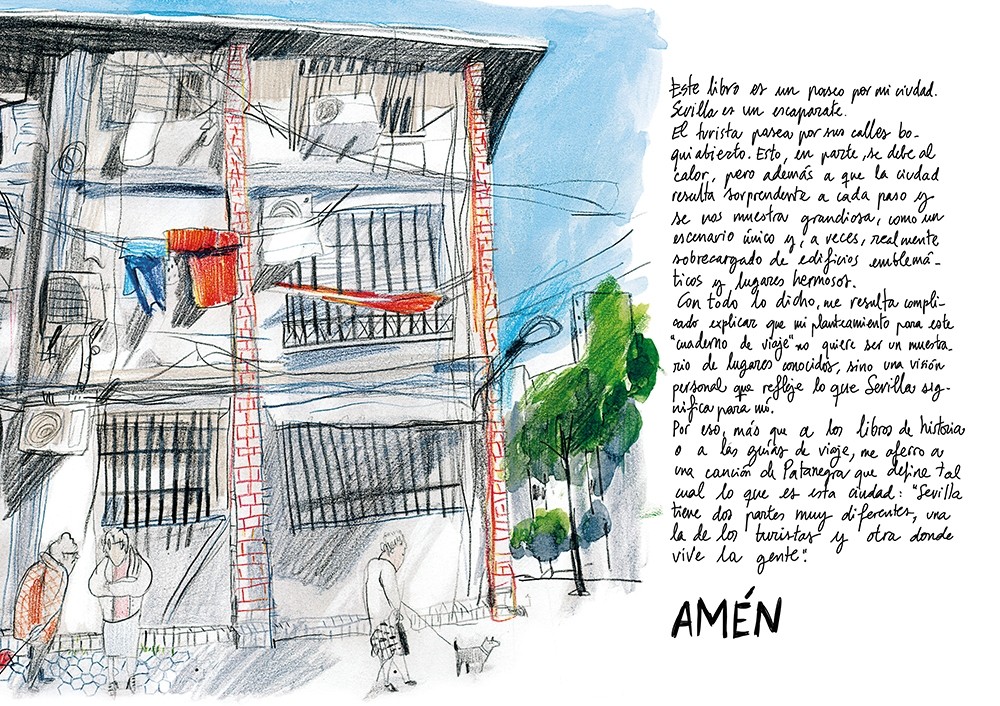 Este libro es un paseo por mi ciudad.
Sevilla es un escaparate.
El turista pasea por sus calles bo-
quiabierto. Esto, en parte, se debe al
calor, pero además a que la ciudad
resulta sorprendente a cada paso y
se nos muestra grandiosa, como un
escenario único y, a veces, realmente
sobrecargado de edificios emblemá-
ticos y lugares hermosos.
Con todo lo dicho, me resulta compli-
cado explicar que mi planteamiento para este
"cuaderno de viaje" no quiere ser un muestra-
rio de lugares conocidos, sino una visión
personal que refleje lo que Sevilla sig-
nifica para mí.
Por eso, más que a los libros de historia
o a las guías de viaje, me aferro a
una canción de Patanegra que define tal
cual lo que es esta ciudad: "Sevilla
tiene dos partes muy diferentes, una
la de los turistas y otra donde
vive la gente".
AMÉN